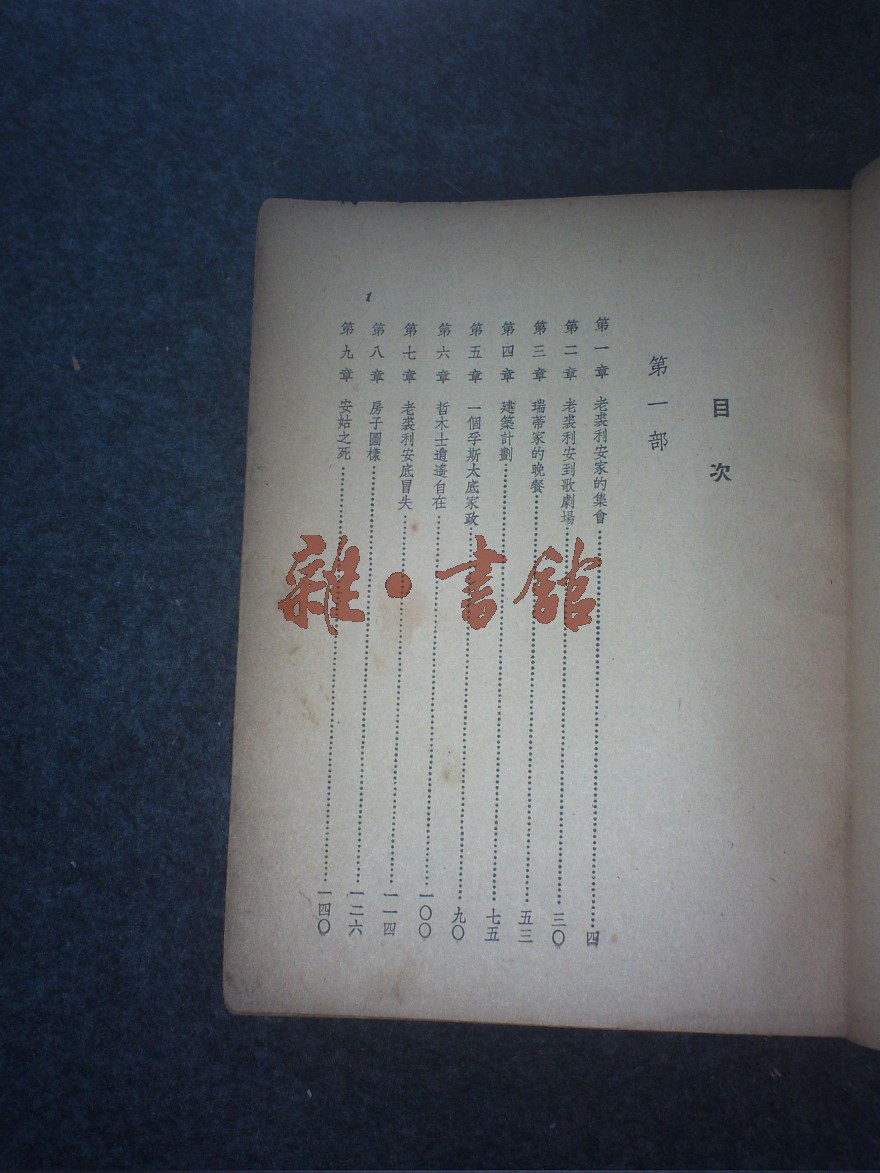 目次
第一部
第一章 老裘利安家的集會……四
第二章 老裘利安到歌劇場……三〇
第三章 瑞蒂家的晚餐……五三
第四章 建築計劃……七五
第五章 一個孚斯太底家政……九〇
第六章 哲木士逍遙自在……一〇〇
第七章 老裘利安底冒失……一一四
第八章 房子圖樣……一二六
第九章 安姑之死……一四〇
1
雜·書館